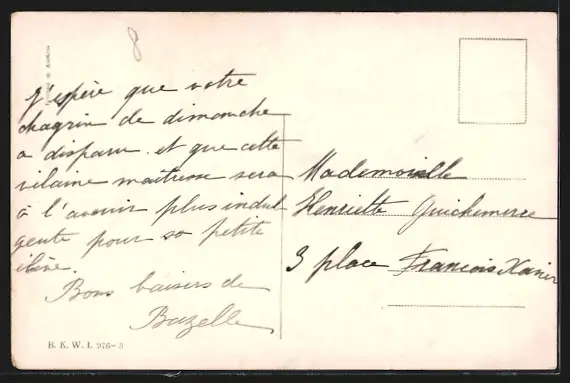 8
J'espère que votre
chagrin de dimanche
a disparu. et que cette
vilaine maitresse sera
à l'avenir plus indul
gente pour sa petite
élève.
Bons baisers de
Buzelle
Mademoiselle
Henriette
3 place Francois Xavier
B. K. W. I. 976-3